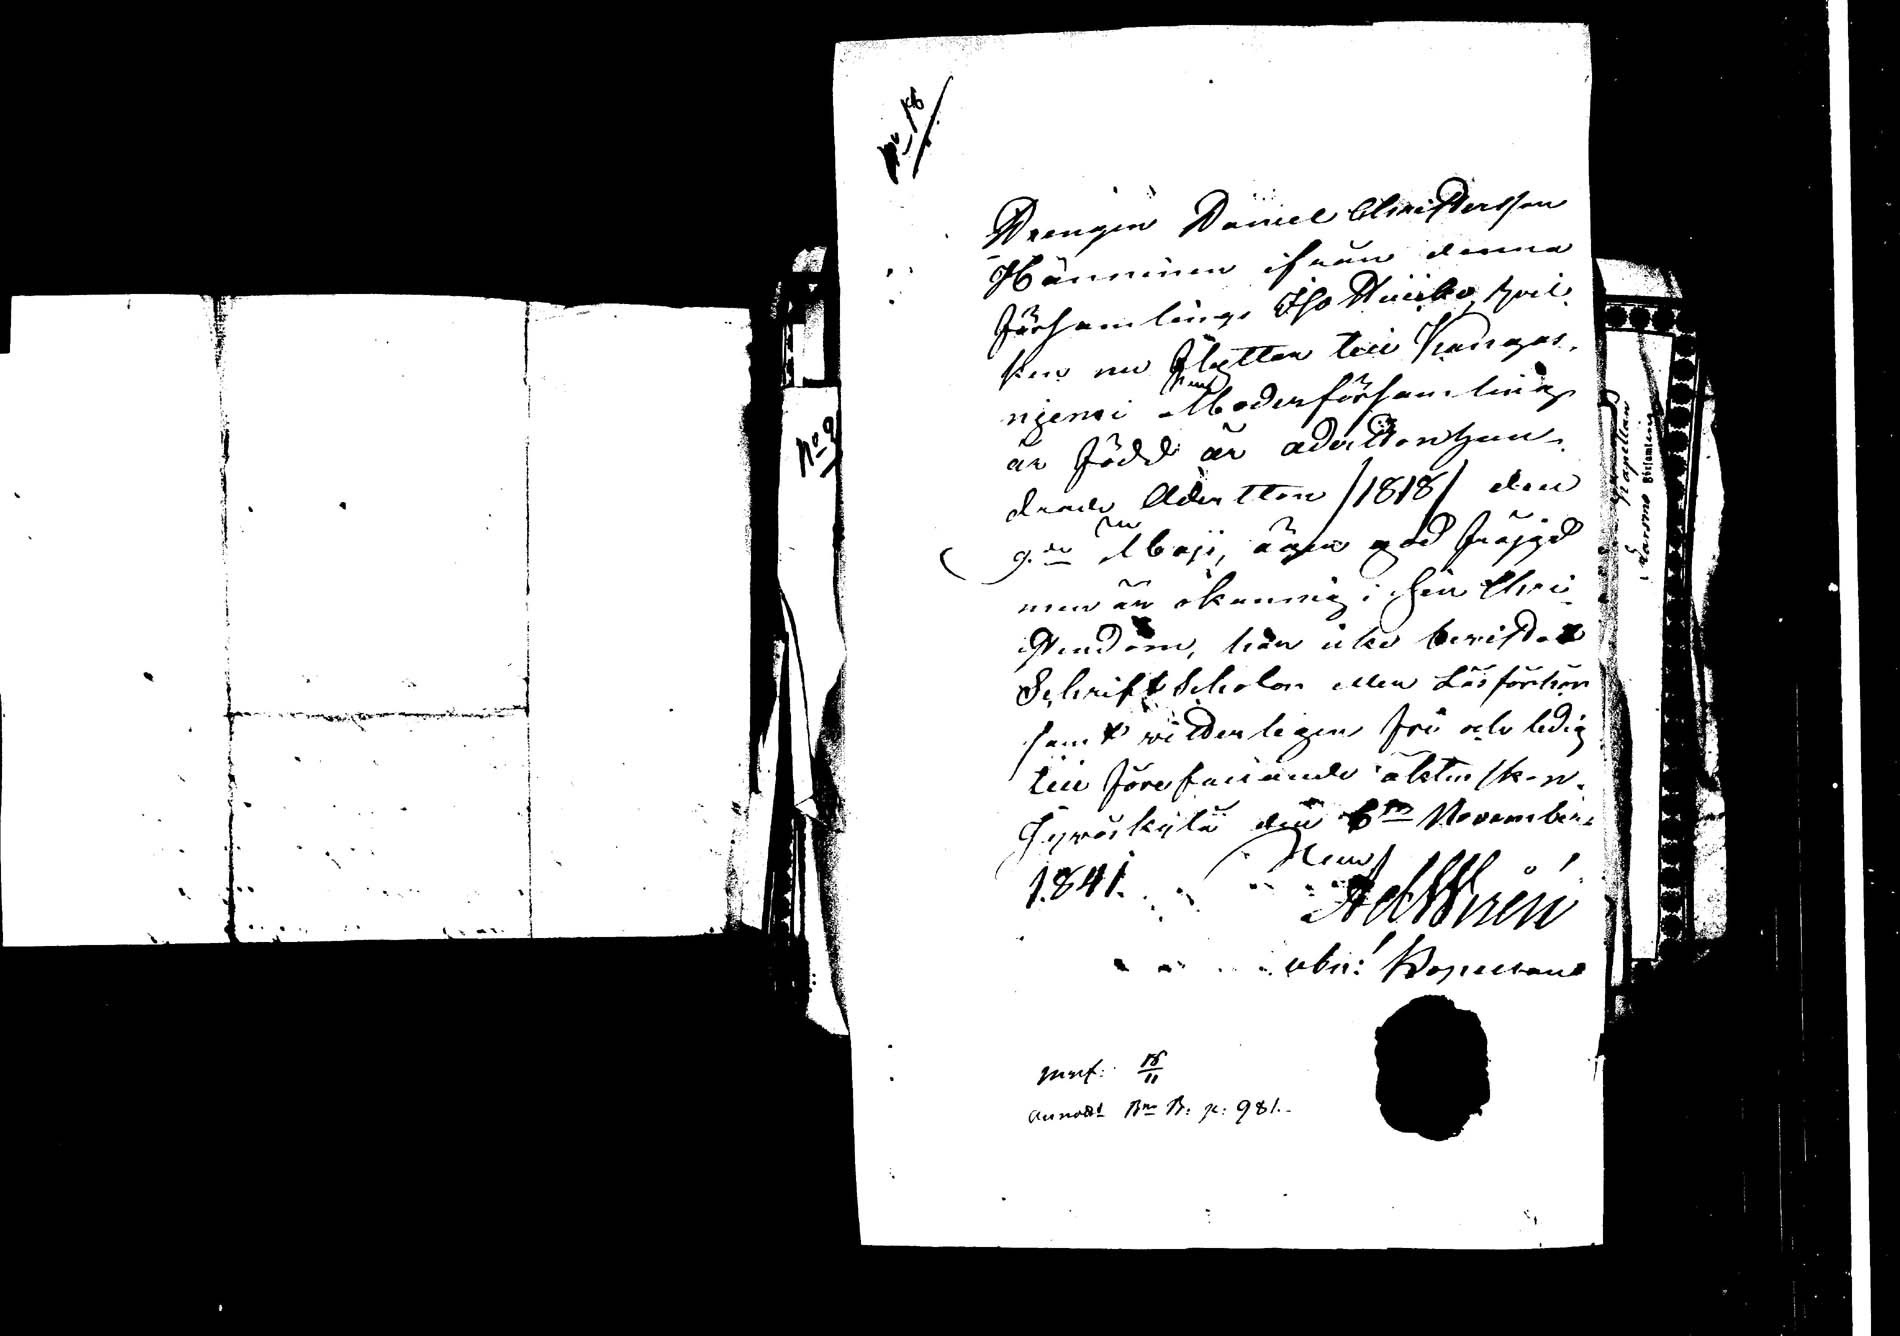 No 18
Drengen Daniel Christersson
Hänninen ifrån denna
församlings Iso Ruicka, hvil-
ken nu flyttar till Kangas-
niemi Moderförsamling
är född år adertonhun-
drade Aderton /1818/ den
9de Maji, äger god fräjgd
men är okunnig i sin Chri-
stendom, har icke bevistat
Schrift Scholor eller Läsförhör
samt vitterligen fri och ledig
till förefallande äktenskap.
Jyväskylä den 6te November
1841.
Ad Wirén
vbi: Kapellans
No 9
Kapellan
Larsmo församling
Insf: 18/11
Annot: B: p: 981.